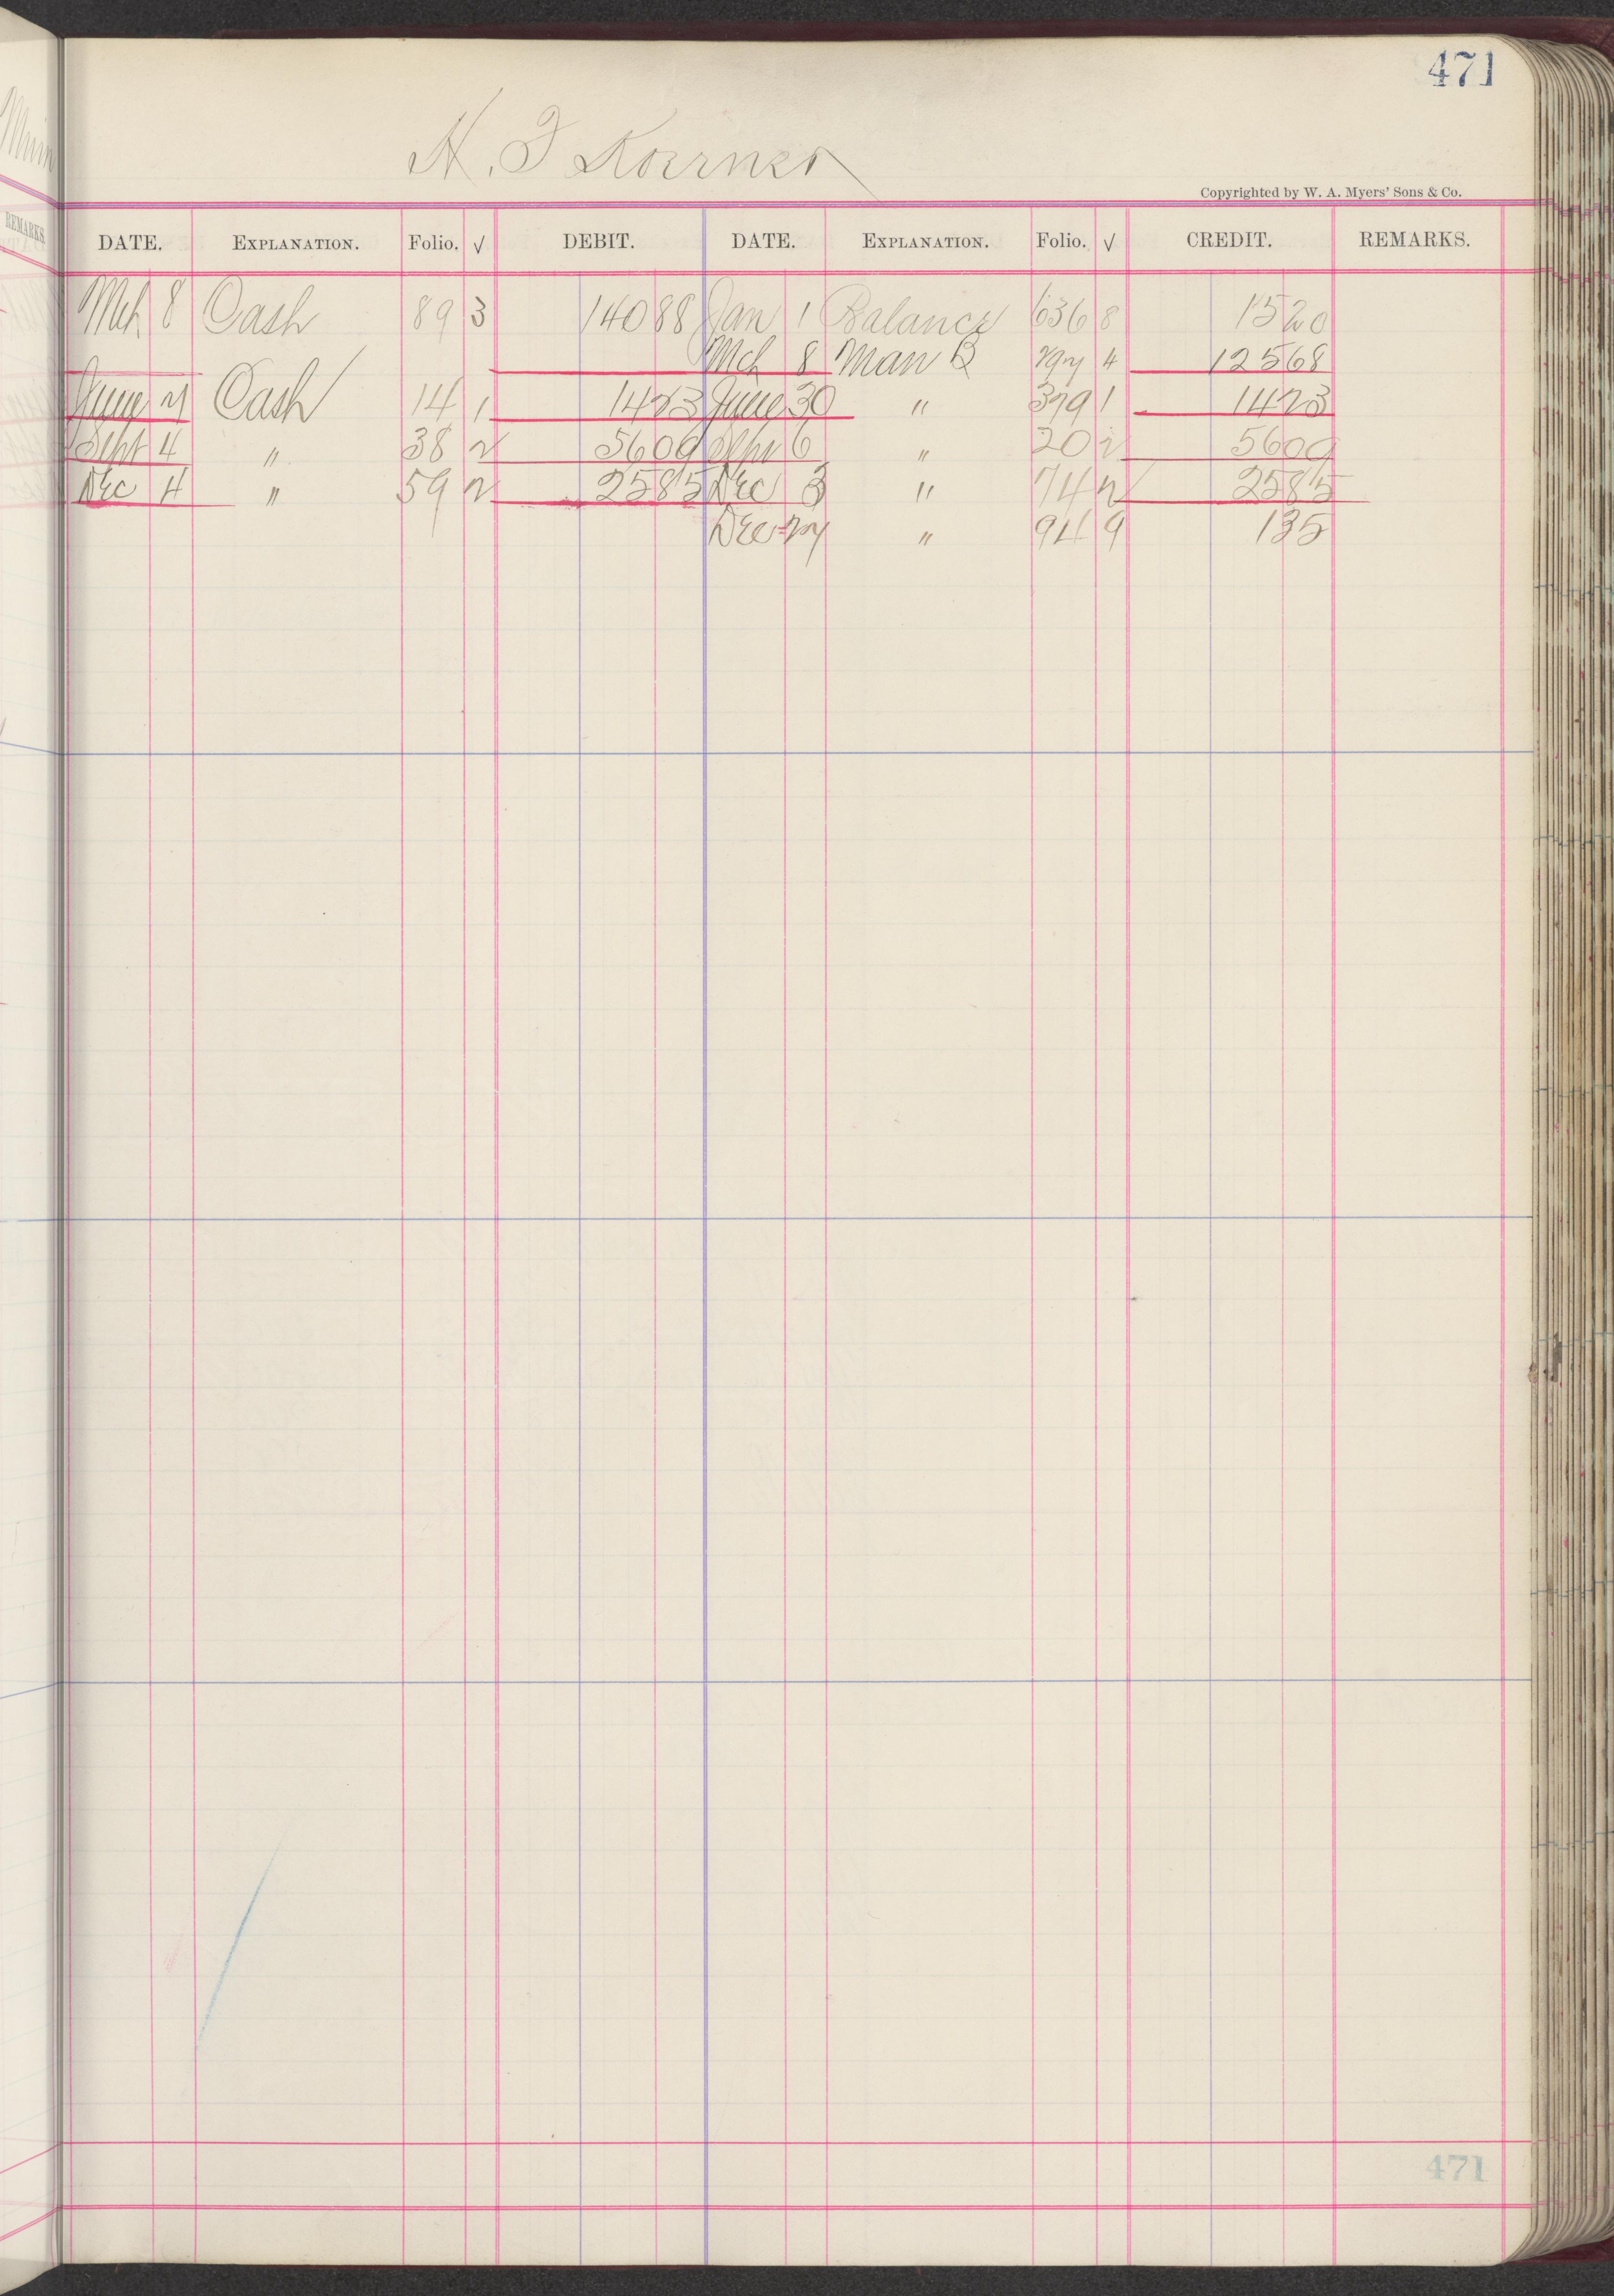 471
H. F Koerner
Copyrighted by W. A. Myers' Sons & Co.
REMARKS.
DATE. EXPLANATION. Folio. √ DEBIT. DATE. EXPLANATION. Folio. √ CREDIT. REMARKS.
Mch 8 Cash 89 3 140 88 Jan 1 Balance 636 8 15 20
Mch 8 Man B 4 125 68
June 7 Cash 14 1 14 23 June 30 " 379 1 14 23
Sept 4 " 38 2 56 09 Sept 6 " 20 2 56 09
Dec 4 " 59 2 25 85 Dec 3 " 74 2 25 85
Dec 27 " 94 9 1 35
471